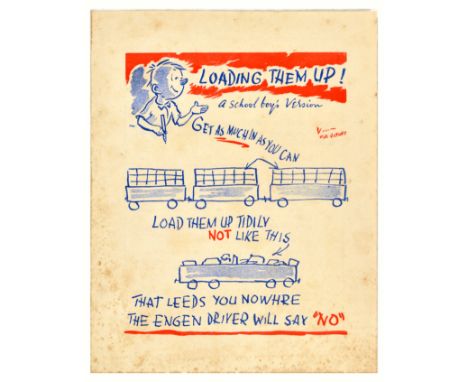 LOADING THEM UP!
a school boy's Version
GET AS MUCH IN AS YOU CAN
V...–
FOR VICTORY
LOAD THEM UP TIDILY
NOT LIKE THIS
THAT LEEDS YOU NOWHRE
THE ENGEN DRIVER WILL SAY "NO"